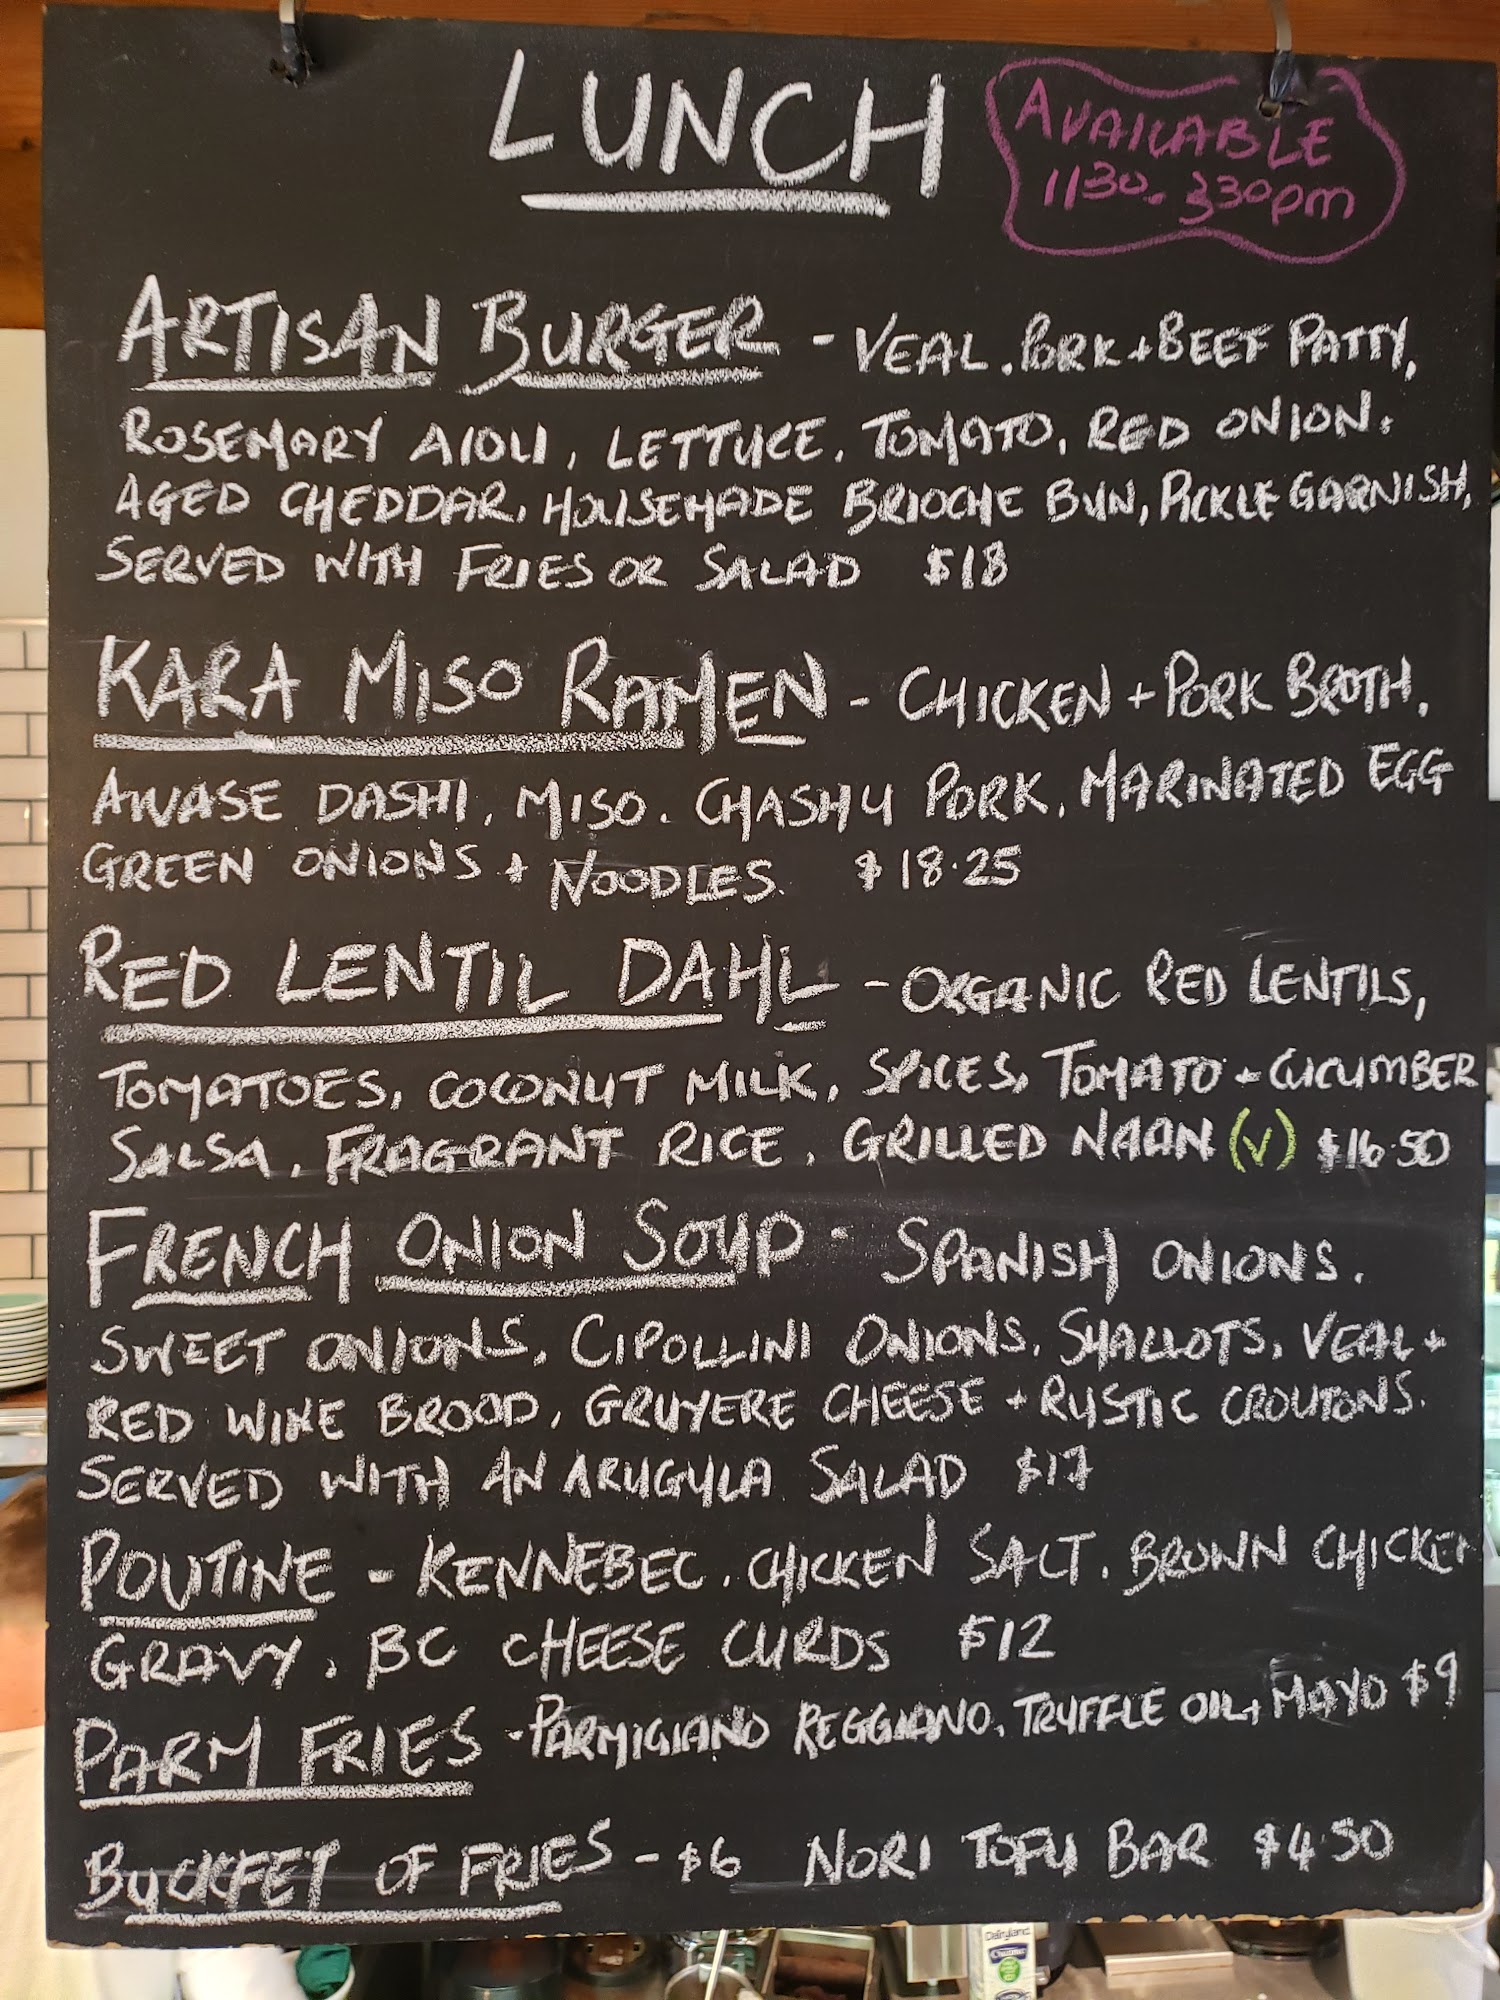 LUNCH
AVAILABLE
1130-330pm
ARTISAN BURGER - VEAL, PORK + BEEF PATTY,
ROSEMARY AIOLI, LETTUCE, TOMATO, RED ONION,
AGED CHEDDAR, HOUSEMADE BRIOCHE BUN, PICKLE GARNISH,
SERVED WITH FRIES OR SALAD $18
KARA MISO RAMEN - CHICKEN + PORK BROTH,
AWASE DASHI, MISO, CHASHU PORK, MARINATED EGG
GREEN ONIONS + NOODLES $18.25
RED LENTIL DAHL - ORGANIC RED LENTILS,
TOMATOES, COCONUT MILK, SPICES, TOMATO + CUCUMBER
SALSA, FRAGRANT RICE, GRILLED NAAN (V) $16.50
FRENCH ONION SOUP - SPANISH ONIONS,
SWEET ONIONS, CIPOLLINI ONIONS, SHALLOTS, VEAL +
RED WINE BROOD, GRUYERE CHEESE + RUSTIC CROUTONS.
SERVED WITH AN ARUGULA SALAD $17
POUTINE - KENNEBEC, CHICKEN SALT, BROWN CHICKEN
GRAVY, BC CHEESE CURDS $12
PARM FRIES - PARMIGIANO REGGIANO, TRUFFLE OIL + MAYO $9
BUCKET OF FRIES - $6 NORI TOFU BAR $4.50
Dairyland